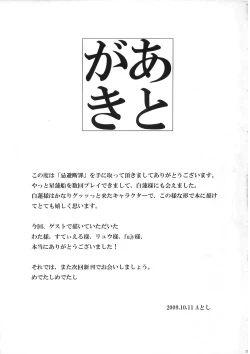 あとがき
この度は「忌避断罪」を手に取って頂きましてありがとうございます。
やっと星蓮船を数回プレイできまして、白蓮様にも会えました。
白蓮様はかなりグッッっと来たキャラクターで、この様な形で本に描け
てとても嬉しく思います。
今回、ゲストで描いていただいた
わた様、すてぃえる様、リュウ様、fujy様、
本当にありがとうございました！
それでは、また次回新刊でお会いしましょう。
めでたしめでたし
2009.10.11 Aとし